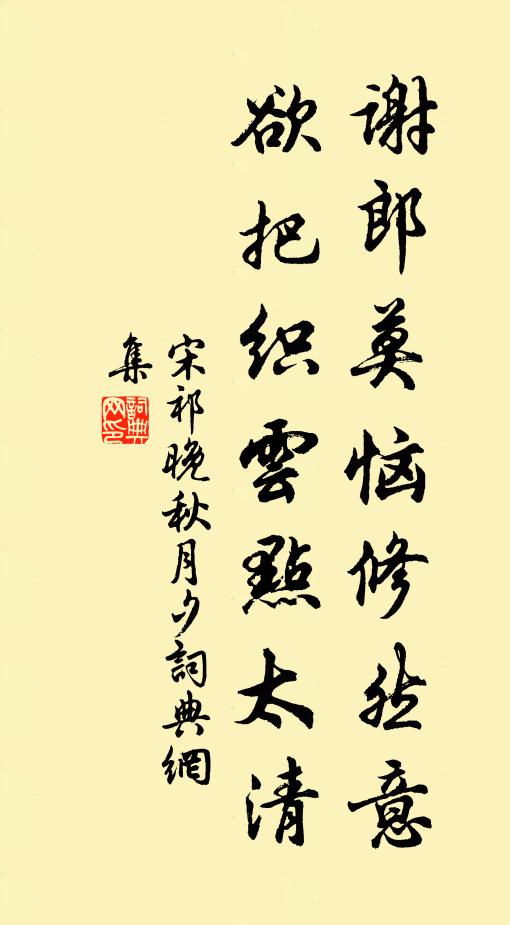 谢郎莫恼修然意
欲把织雲點太清
宋祁晚秋月夕詞典網
集
詞典网印